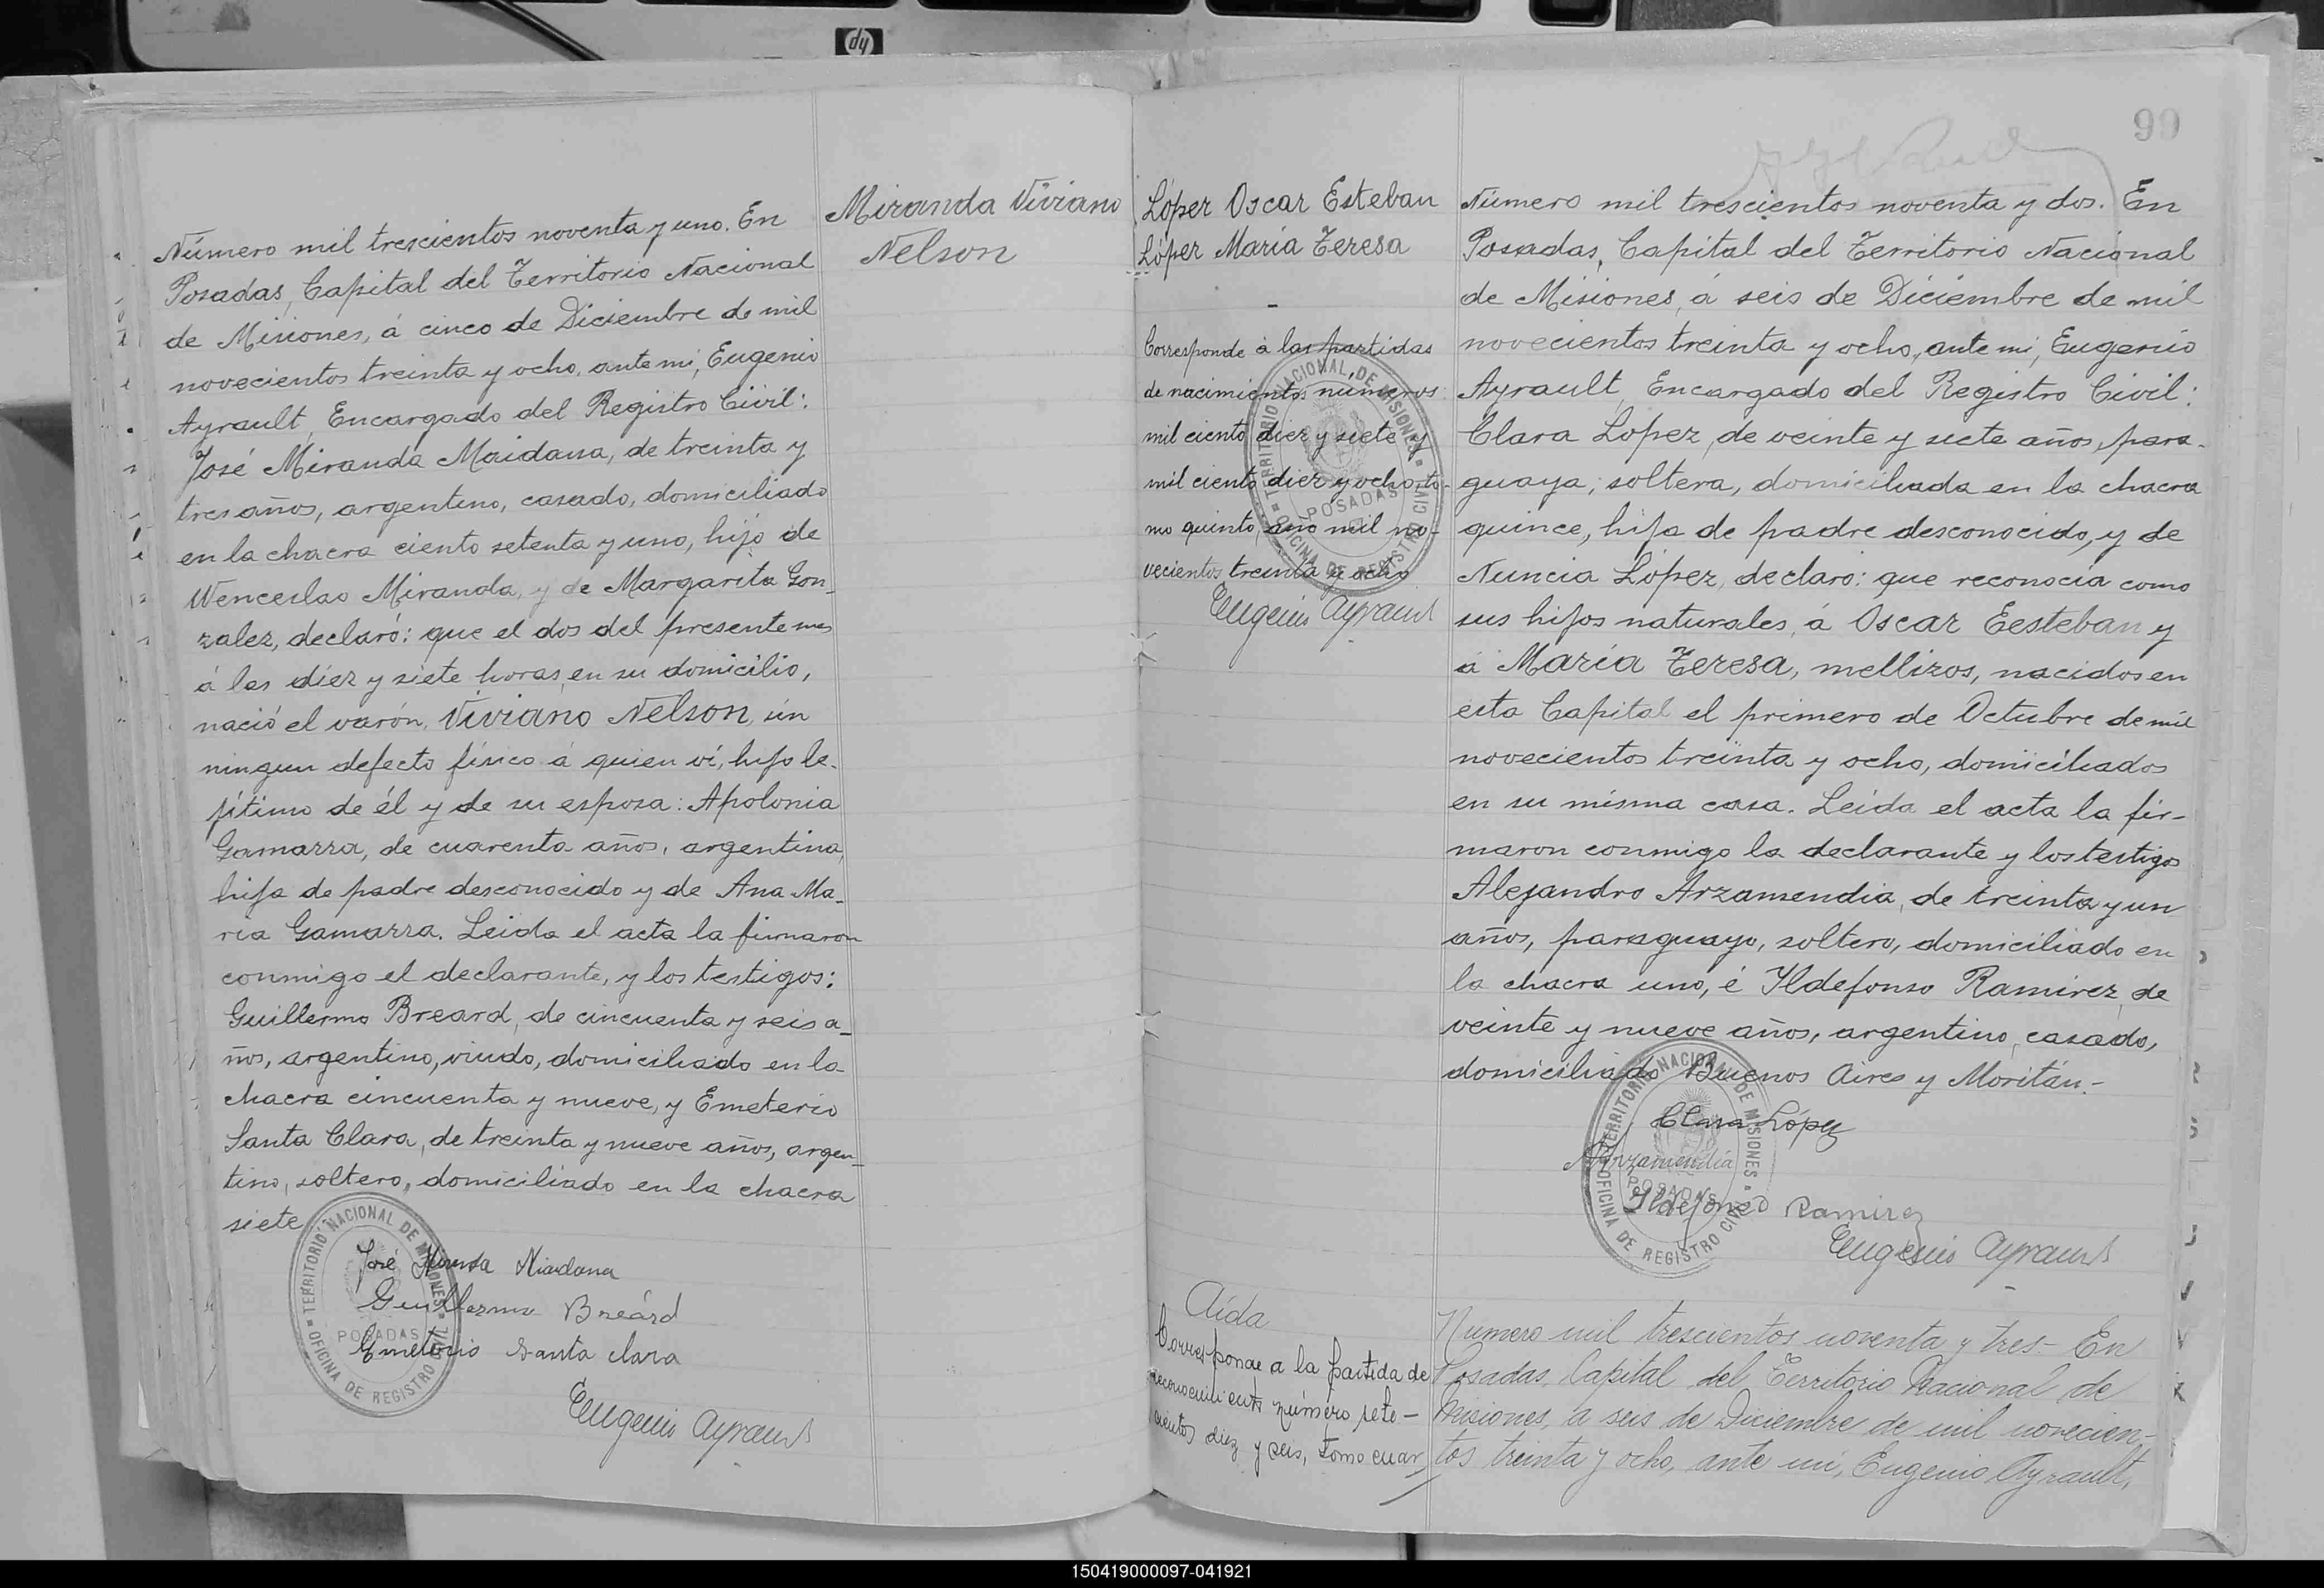 hp
Miranda Viviano
Nelson
Número mil trescientos noventa y uno. En
Posadas, Capital del Territorio Nacional
de Misiones, á cinco de Diciembre de mil
novecientos treinta y ocho, ante mi, Eugenio
Ayrault, Encargado del Registro Civil:
José Miranda Maidana, de treinta y
tres años, argentino, casado, domiciliado
en la chacra ciento setenta y uno, hijo de
Wenceslao Miranda, y de Margarita Gon-
zalez, declaró: que el dos del presente mes
á las diez y siete horas, en su domicilio,
nació el varón, Viviano Nelson, sin
ningun defecto físico á quien ví, hijo le-
jítimo de él y de su esposa: Apolonia
Gamarra, de cuarenta años, argentina,
hija de padre desconocido y de Ana Ma-
ria Gamarra. Leida el acta la firmaron
conmigo el declarante, y los testigos:
Guillermo Breard, de cincuenta y seis a-
ños, argentino, viudo, domiciliado en la
chacra cincuenta y nueve, y Emeterio
Santa Clara, de treinta y nueve años, argen-
tino, soltero, domiciliado en la chacra
siete
TERRITORIO NACIONAL DE MISIONES
POSADAS
OFICINA DE REGISTRO CIVIL
José Miranda Maidana
Guillermo Breárd
Emeterio Santa Clara
Eugenio Ayrault
99
López Oscar Esteban
López María Teresa
Corresponde á las partidas
de nacimientos números
mil ciento diez y siete y
mil ciento diez y ocho, to-
mo quinto, año mil no-
vecientos treinta y ocho
Eugenio Ayrault
TERRITORIO NACIONAL DE MISIONES
POSADAS
OFICINA DE REGISTRO CIVIL
Número mil trescientos noventa y dos. En
Posadas, Capital del Territorio Nacional
de Misiones, á seis de Diciembre de mil
novecientos treinta y ocho, ante mi, Eugenio
Ayrault, Encargado del Registro Civil:
Clara López, de veinte y siete años, para-
guaya, soltera, domiciliada en la chacra
quince, hija de padre desconocido, y de
Nuncia López, declaró: que reconocía como
sus hijos naturales, á Oscar Eesteban y
á María Teresa, mellizos, nacidos en
esta Capital el primero de Octubre de mil
novecientos treinta y ocho, domiciliados
en su misma casa. Leida el acta la fir-
maron conmigo la declarante y los testigos
Alejandro Arzamendia, de treinta y un
años, paraguayo, soltero, domiciliado en
la chacra uno, é Ildefonso Ramirez, de
veinte y nueve años, argentino, casado,
domiciliado Buenos Aires y Moritán.-
TERRITORIO NACIONAL DE MISIONES
POSADAS
OFICINA DE REGISTRO CIVIL
Clara López
A Arzamendia
Ildefonso Ramirez
Eugenio Ayrault
Aida
Corresponde a la partida de
reconocimiento número sete-
cientos diez y seis, tomo cuar
Numero mil trescientos noventa y tres.- En
Posadas, Capital del Territorio Nacional de
Misiones, a seis de Diciembre de mil novecien-
tos treinta y ocho, ante mi, Eugenio Ayrault,
150419000097-041921